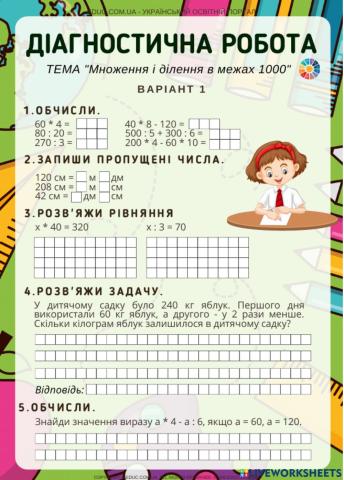 EDUC.COM.UA - УКРАЇНСЬКИЙ ОСВІТНІЙ ПОРТАЛ
ДІАГНОСТИЧНА РОБОТА
ТЕМА "Множення і ділення в межах 1000"
ВАРІАНТ 1
1.ОБЧИСЛИ.
60 * 4 =
40 * 8 - 120 =
80 : 20 =
500 : 5 + 300 : 6 =
270 : 3 =
200 * 4 - 60 * 10 =
2.ЗАПИШИ ПРОПУЩЕНІ ЧИСЛА.
120 см = м дм
208 см = м см
42 см = дм см
3.РОЗВ'ЯЖИ РІВНЯННЯ
х * 40 = 320 х : 3 = 70
4.РОЗВ'ЯЖИ ЗАДАЧУ.
У дитячому садку було 240 кг яблук. Першого дня
використали 60 кг яблук, а другого - у 2 рази менше.
Скільки кілограм яблук залишилося в дитячому садку?
Відповідь:
5.ОБЧИСЛИ.
Знайди значення виразу а * 4 - а : 6, якщо а = 60, а = 120.
LIVEWORKSHEETS